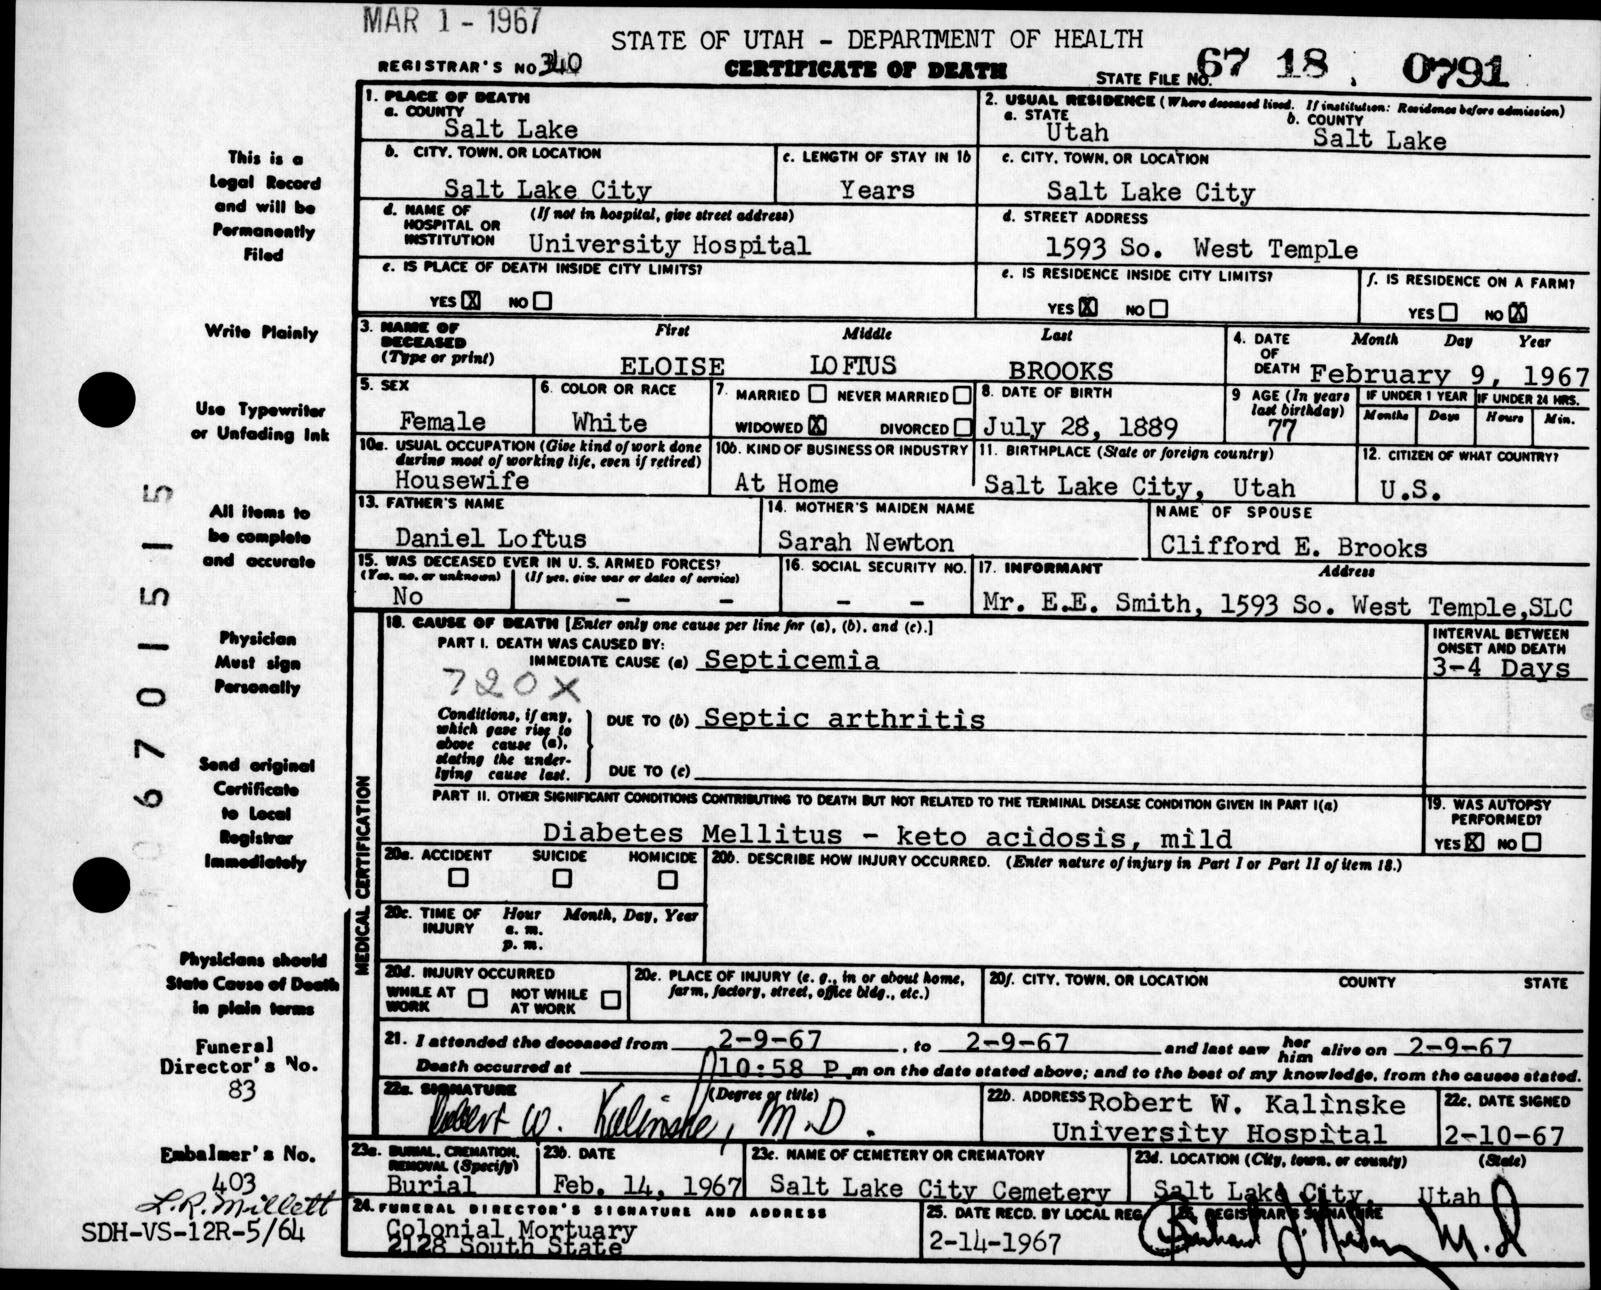 MAR 1 - 1967
STATE OF UTAH - DEPARTMENT OF HEALTH
REGISTRAR'S NO 340
CERTIFICATE OF DEATH
STATE FILE NO. 67 18 . 0791
This is a
Legal Record
and will be
Permanently
Filed
Write Plainly
Use Typewriter
or Unfading Ink
All items to
be complete
and accurate
Physician
Must sign
Personally
Send original
Certificate
to Local
Registrar
Immediately
Physicians should
State Cause of Death
in plain terms
Funeral
Director's No.
83
Embalmer's No.
403
L.R. Millett
SDH-VS-12R-5/64
1. PLACE OF DEATH
a. COUNTY
Salt Lake
2. USUAL RESIDENCE (Where deceased lived. If institution: Residence before admission)
a. STATE
Utah
b. COUNTY
Salt Lake
b. CITY, TOWN, OR LOCATION
Salt Lake City
c. LENGTH OF STAY IN 1b
Years
c. CITY, TOWN, OR LOCATION
Salt Lake City
d. NAME OF (If not in hospital, give street address)
HOSPITAL OR
INSTITUTION University Hospital
d. STREET ADDRESS
1593 So. West Temple
e. IS PLACE OF DEATH INSIDE CITY LIMITS?
YES X NO
e. IS RESIDENCE INSIDE CITY LIMITS?
YES X NO
f. IS RESIDENCE ON A FARM?
YES NO X
3. NAME OF
DECEASED
(Type or print)
First Middle Last
ELOISE LOFTUS BROOKS
4. DATE
OF
DEATH
Month Day Year
February 9, 1967
5. SEX
Female
6. COLOR OR RACE
White
7. MARRIED NEVER MARRIED
WIDOWED X DIVORCED
8. DATE OF BIRTH
July 28, 1889
9 AGE (In years
last birthday)
77
IF UNDER 1 YEAR
Months Days
IF UNDER 24 HRS.
Hours Min.
10a. USUAL OCCUPATION (Give kind of work done
during most of working life, even if retired)
Housewife
10b. KIND OF BUSINESS OR INDUSTRY
At Home
11. BIRTHPLACE (State or foreign country)
Salt Lake City, Utah
12. CITIZEN OF WHAT COUNTRY?
U.S.
13. FATHER'S NAME
Daniel Loftus
14. MOTHER'S MAIDEN NAME
Sarah Newton
NAME OF SPOUSE
Clifford E. Brooks
15. WAS DECEASED EVER IN U. S. ARMED FORCES?
(Yes, no, or unknown) (If yes, give war or dates of service)
No - -
16. SOCIAL SECURITY NO.
- -
17. INFORMANT Address
Mr. E.E. Smith, 1593 So. West Temple,SLC
MEDICAL CERTIFICATION
18. CAUSE OF DEATH [Enter only one cause per line for (a), (b), and (c).]
PART I. DEATH WAS CAUSED BY:
IMMEDIATE CAUSE (a) Septicemia
720X
INTERVAL BETWEEN
ONSET AND DEATH
3-4 Days
Conditions, if any,
which gave rise to
above cause (a),
stating the under-
lying cause last.
DUE TO (b) Septic arthritis
DUE TO (c)
PART II. OTHER SIGNIFICANT CONDITIONS CONTRIBUTING TO DEATH BUT NOT RELATED TO THE TERMINAL DISEASE CONDITION GIVEN IN PART I(a)
Diabetes Mellitus - keto acidosis, mild
19. WAS AUTOPSY
PERFORMED?
YES X NO
20a. ACCIDENT SUICIDE HOMICIDE
20b. DESCRIBE HOW INJURY OCCURRED. (Enter nature of injury in Part I or Part II of item 18.)
20c. TIME OF
INJURY
Hour Month, Day, Year
a. m.
p. m.
20d. INJURY OCCURRED
WHILE AT
WORK
NOT WHILE
AT WORK
20e. PLACE OF INJURY (e. g., in or about home,
farm, factory, street, office bldg., etc.)
20f. CITY, TOWN, OR LOCATION COUNTY STATE
21. I attended the deceased from 2-9-67, to 2-9-67 and last saw her him alive on 2-9-67
Death occurred at 10:58 P.m on the date stated above; and to the best of my knowledge, from the causes stated.
22a. SIGNATURE (Degree or title)
Robert W. Kalinske, M.D.
22b. ADDRESS Robert W. Kalinske
University Hospital
22c. DATE SIGNED
2-10-67
23a. BURIAL, CREMATION,
REMOVAL (Specify)
Burial
23b. DATE
Feb. 14, 1967
23c. NAME OF CEMETERY OR CREMATORY
Salt Lake City Cemetery
23d. LOCATION (City, town, or county) (State)
Salt Lake City, Utah
24. FUNERAL DIRECTOR'S SIGNATURE AND ADDRESS
Colonial Mortuary
2128 South State
25. DATE RECD. BY LOCAL REG.
2-14-1967
26. REGISTRAR'S SIGNATURE
M.D
6701515